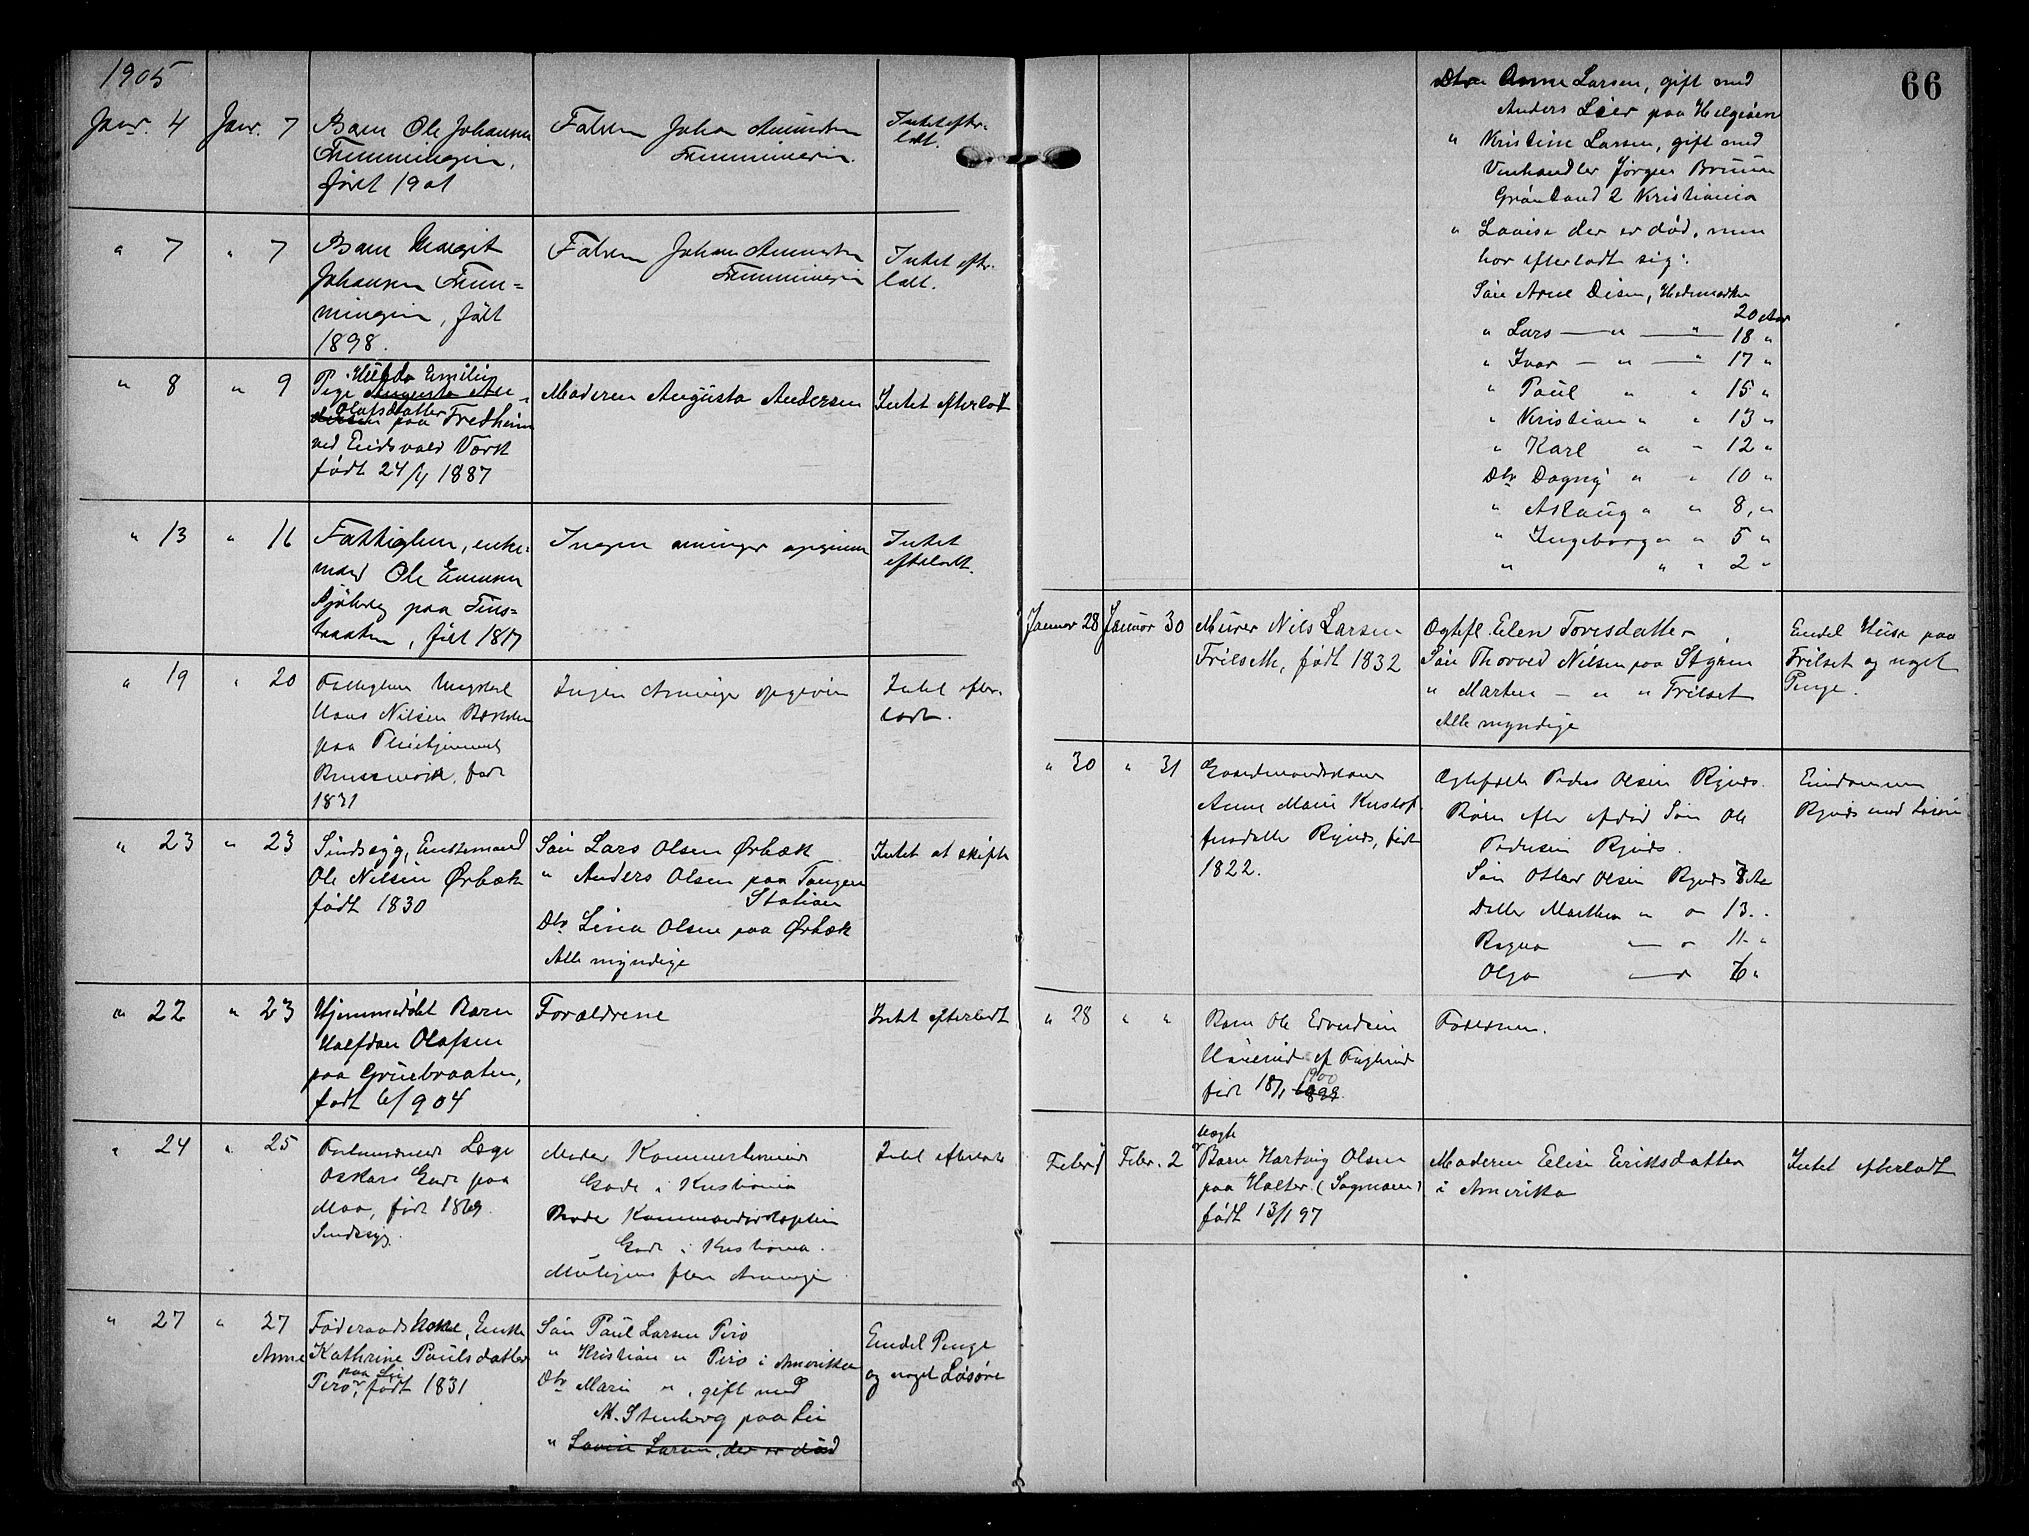 1905
Janr. 4 Janr. 7 Barn Ole Johansen Faderen Johan Amundsen Intet efter-
ladt.
født 1901
" 7 " 7 Barn Margit Faderen Johan Amundsen Intet efter-
Johansen ladt.
født
1898.
" 8 " 9 Pige Hilda Emilie Moderen Augusta Andersen Intet efterladt
Augusta An-
dersen Olafsdatter paa Fredheim
ved Eidsvold Værk
født 24/4 1887
" 13 " 16 Fattiglem, enke- Ingen arvinger opgivne Intet
mand Ole efterladt.
paa
født 1817
" 19 " 20 Fattiglem Ingen Arvinge opgiven Intet efter-
Hans Nilsen ladt.
paa Pleiehjemmet
født
1831
" 23 " 23 Sindssyg, Enkemand Søn Lars Olsen Ørbæk Intet at skifte
Ole Nilsen Ørbæk " Anders Olsen paa Tangen
født 1830 Station
Dtr Lina Olsen paa Ørbæk
Alle myndige
" 22 " 23 Hjemmedøbt Barn Forældrene Intet efterladt
Halfdan Olafsen
paa Gruebraaten,
født 6/ 904
" 24 " 25 Læge Moder Intet efterladt
Oskar Gade paa Gade i Kristiania
Moa, født 1869. Broder Kommandørkaptein
Sindssyg. Gade i Kristiania.
Muligens flere Arvinger
" 27 " 27 Føderaadskone, Enke Søn Paul Larsen Piro Endel Penge
Anne Kathrine Paulsdatter " Kristian " Piro i Amerika og noget Løsøre
Piro paa Lie, født 1831 Dtr Marie " , gift med
M. Stenberg paa Lie
" Lovise Larsen, der er død
66
Dtr Anne Larsen, gift med
Anders Lier paa Helgøen
" Kristine Larsen, gift med
Vinhandler Jørgen Bruun
Grønland 2 Kristiania
" Lovise der er død, men
har efterladt sig:
Søn Arne Disen, Hedemarken
20 Aar
" Lars — " — " — 18 "
" Ivar — " — " — 17 "
" Paul " " 15 "
" Kristian " " 13 "
" Karl " " 12 "
Dtr Dagny " " 10 "
" Aslaug " " 8 "
" Ingeborg " " 5 "
" " " 2 "
Januar 28 Januar 30 Murer Nils Larsen Ægtef. Elen Toresdatter Endel Huse paa
Frilseth, født 1832 Søn Thorvald Nilsen paa Stgren Frilset og noget
" Marten — " " Frilset Penge.
Alle myndige
" 30 " 31 Gaardmandskone Ægtefælle Peder Olsen Rynds. Eiendommen
Anne Marie Kristof- Børn efter afdød Søn Ole Rynds med Løsøre
fersdatter Rynds, født Pedersen Rynds.
1822. Søn Olsen Rynds 8 Aar
Datter Marthea " " 13 "
Ragna — " 11 "
Olga — " 6 "
" 28 " " Barn Ole Edvardsen Faderen.
født 18/1 1900 1899.
Febr. 1 Febr. 2 uægte Barn Hartvig Olsen Moderen Elise Eriksdatter Intet efterladt
paa Holter (Sagmoen) i Amerika
født 13/1 97